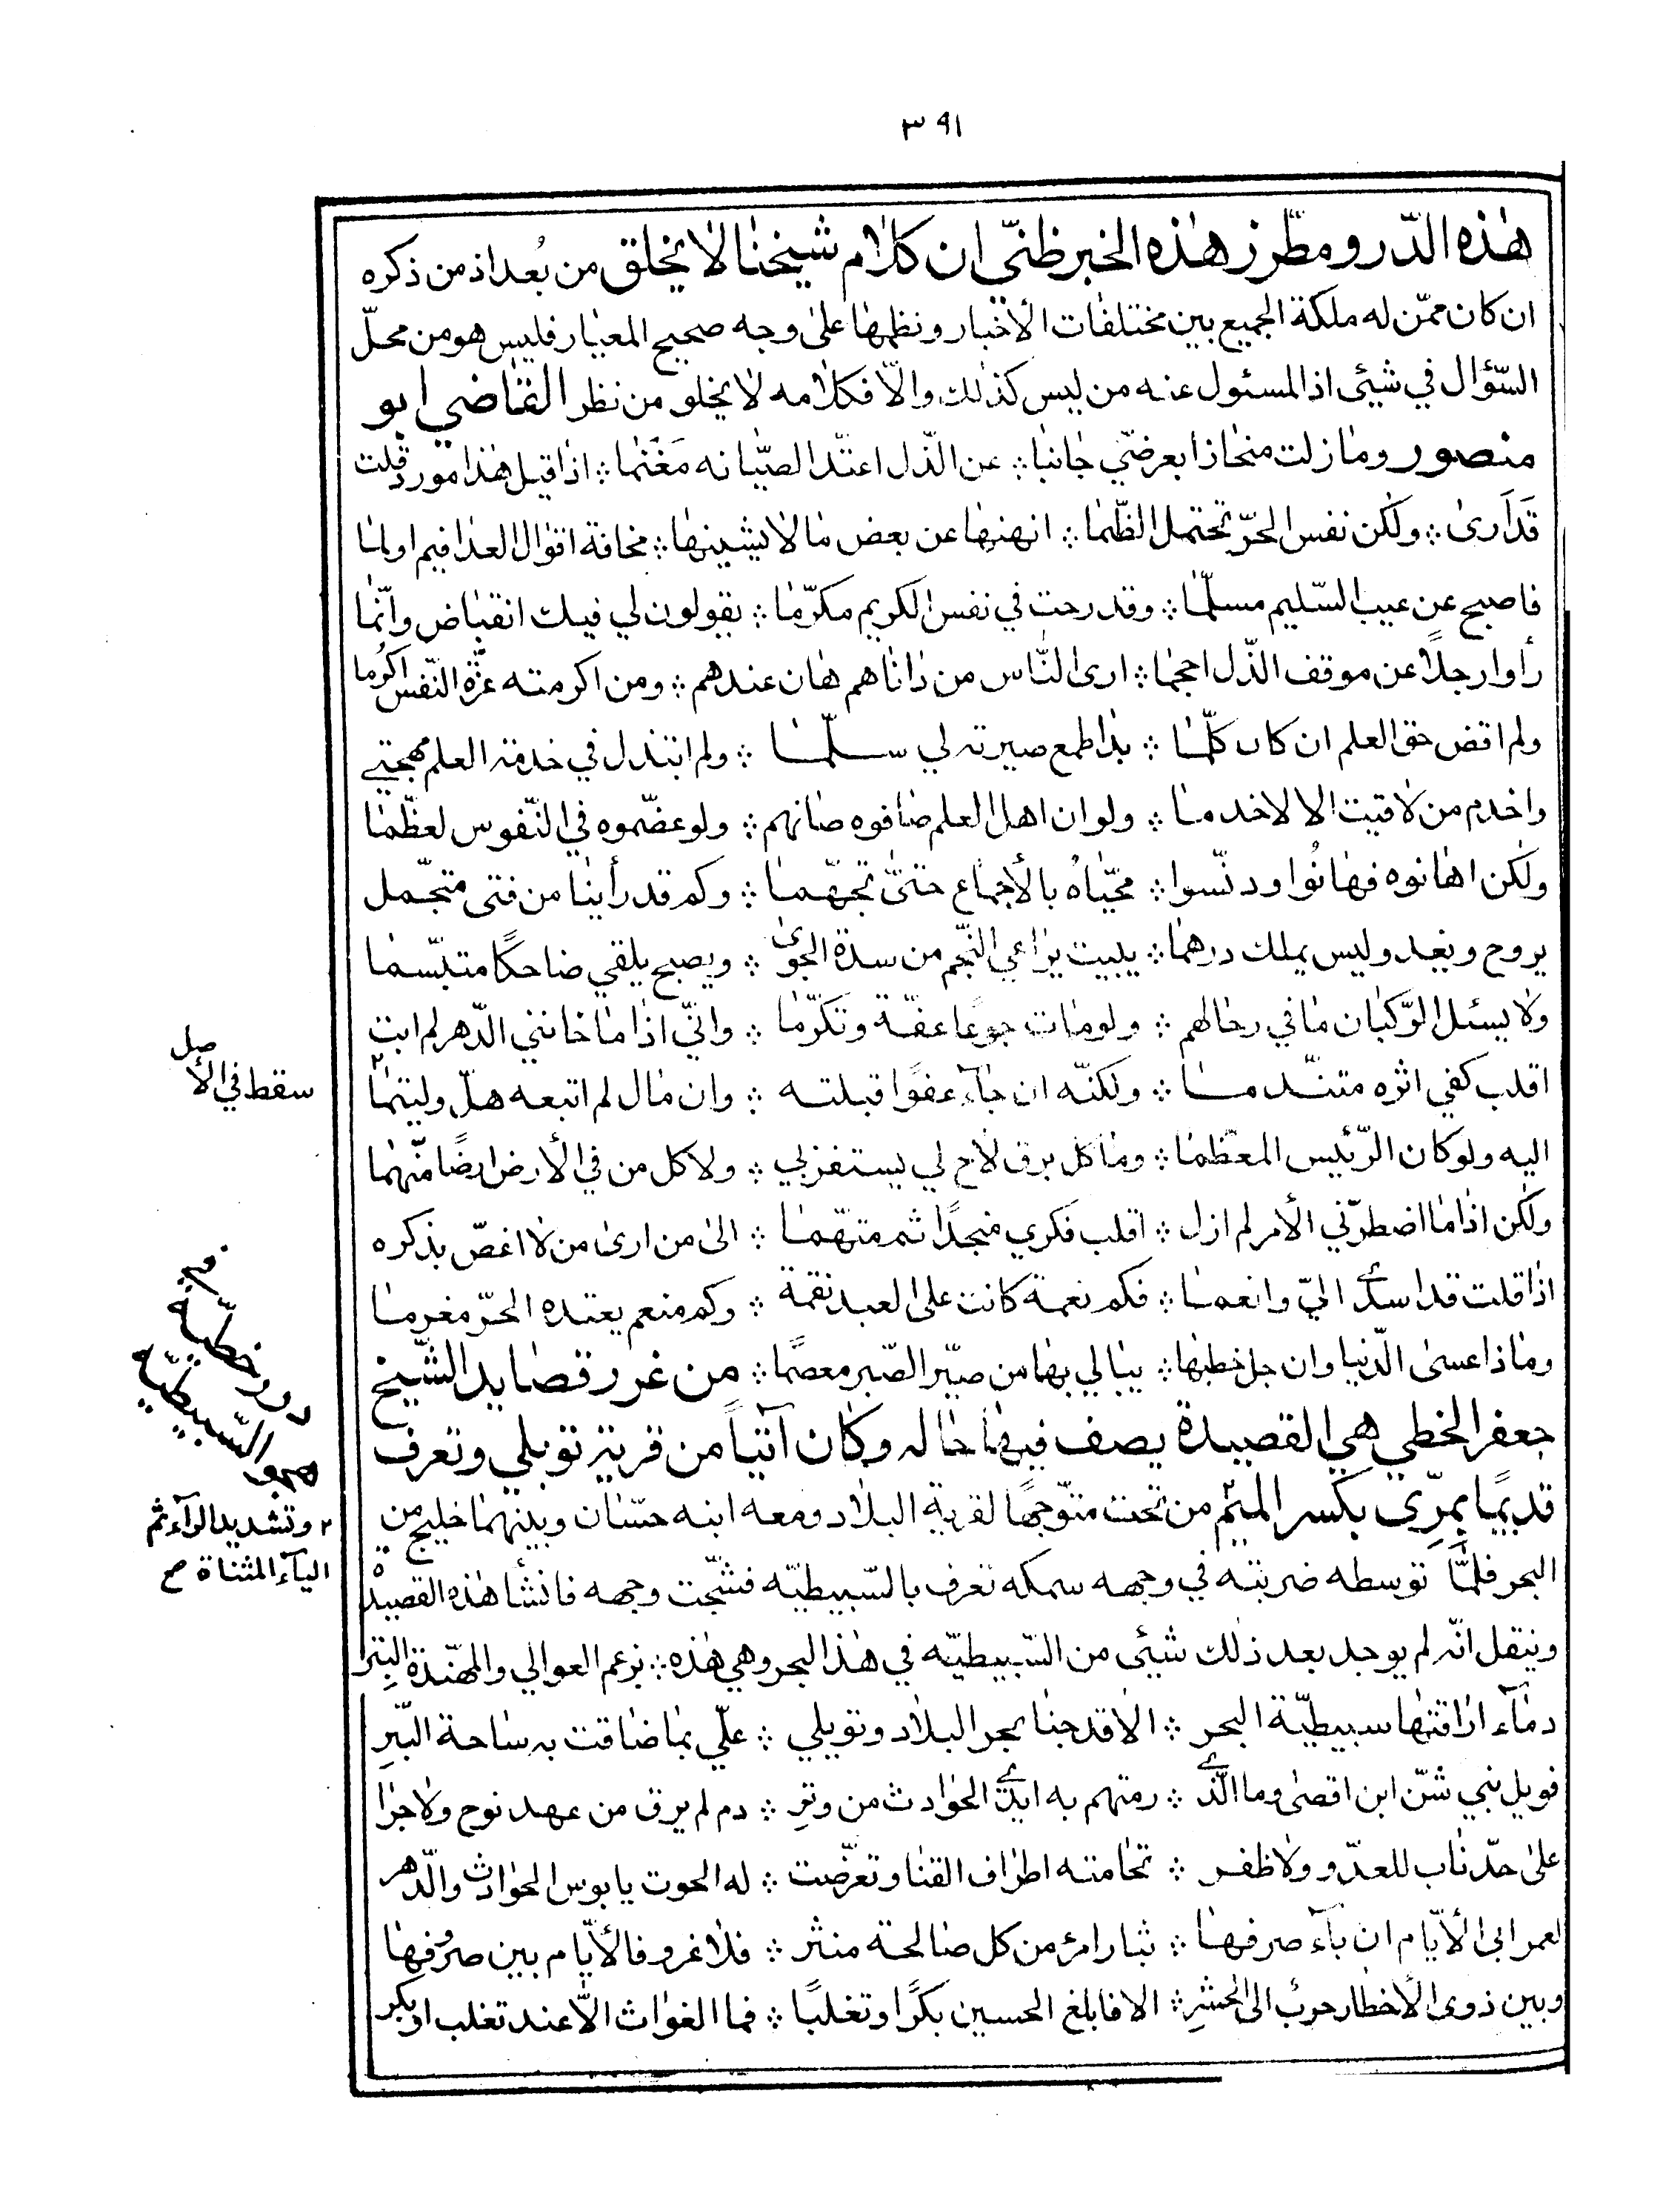 ٣٩١
هذه الدّر ومطرّز هذه الخبر ظنّي ان كلام شيخنا لا يخلق من بُعد اذ من ذكره
ان كان ممّن له ملكة الجميع بين مختلفات الأخبار ونظمها على وجه صحيح المعيار فليس هو من محلّ
السّؤال في شيئ اذ المسئول عنه من ليس كذلك والّا فكلامه لا يخلو من نظر القاضي ابو
منصور وما زلت منحازا بعرضي جانبا ⁘ عن الذّل اعتدّ الصيّانه مَغْنما ⁘ اذا قيل هذا مورد قلت
قَد اَرى ⁘ ولكن نفس الحرّ تحتمل الظّما ⁘ انهنهها عن بعض ما لا يشينها ⁘ مخافة اقوال العدا فيم او لما
فاصبح عن عيب السّليم مسلّما ⁘ وقد رحت في نفس الكريم مكرّما ⁘ يقولون لي فيك انقباض وانّما
رأوا رجلًا عن موقف الذّل احجما ⁘ ارى النّاس من داناهم هان عندهم ⁘ ومن اكرمته عزّة النّفس اكرُما
ولم اقض حق العلم ان كان كلّما ⁘ بدا طمع صيرته لي سلّما ⁘ ولم ابتذل في خدمة العلم مهجتي
واخدم من لاقيت الا لاخدما ⁘ ولو ان اهل العلم صافوه صانهم ⁘ ولو عضّموه في النّفوس لعظّما
ولكن اهانوه فهانُوا ودنّسوا ⁘ محيّاه بالأجماع حتىّ تجهّما ⁘ وكم قد رأينا من فتى متجّمل
يروح ويغد وليس يملك درهما ⁘ يبيت يراعي النّجم من سدة الجوىٰ ⁘ ويصبح يلقي ضاحكًا متبسّما
ولا يسئل الرّكبان ما في رحالهم ⁘ ولو مات جوعًا عفّة وتكرّما ⁘ وانّي اذا ما خانني الدّهر لم ابت
اقلب كفي اثره متندّما ⁘ ولكنّه ان جآء عفوًا قبلته ⁘ وان مال لم اتبعه هلّ وليتما ٢
سقط في الأصل
اليه ولو كان الرّئيس المعظّما ⁘ وما كل برق لاح لي يستفزني ⁘ ولا كل من في الأرض ارضًا منهما
ولكن اذا ما اضطرّني الأمر لم ازل ⁘ اقلب فكري منجدًا ثم متهما ⁘ الى من ارى من لا اغصّ بذكره
اذا قلت قد اسدى اليّ وانعما ⁘ فكم نعمة كانت على العبد نقمة ⁘ وكم منعم يعتده الحرّ مغرما
وما ذا عسى الدّنيا وان جل خطبها ⁘ يبالي بها من صيّر الصّبر معصما ⁘ من غرر قصايد الشّيخ
جعفر الخطي هي القصيدة يصف فيها حاله وكان آتياً من قرية توبلي وتعرف
قديمًا بمِرّى بكسر الميم من تحت متوّجهًا لقرية البلاد ومعه ابنه حسّان وبينهما خليج من
٢ وتشديد الرآء ثم
اليآء المثناة ص
البحر فلمّا توسطه ضربته في وجهه سمكه تعرف بالسّبيطيّه فشجّت وجهه فانشأ هذه القصيدة
وينقل انّه لم يوجد بعد ذلك شيئ من السّبيطيّه في هذا البحر وهي هذه ⁘ برغم العوالي والمهنّدة البترا
دمآء اراقتها سبيطيّة البحر ⁘ الا قد جنا بحر البلاد وتوبلي ⁘ علّي بما ضاقت به ساحة البّرِ
فويل بني شنّ ابن اقصى وما الّذي ⁘ رمتهم به ايدي الحوادث من وترِ ⁘ دم لم يرق من عهد نوح ولا جرا
على حدّ ناب للعدّو ولا ظفر ⁘ تحامته اطراف القنا وتعرّضت ⁘ له الحوت يا بوس الحوادث والدّهر
لعمر ابي الأيّام ان بآء صرفها ⁘ بثار امرئ من كل صالحة منثر ⁘ فلا غرو فالأيّام بين صروفها
وبين ذوى الأخطار حربُ الى الحشرِ ⁘ الا فابلغ الحسين بكرًا وتغلبًا ⁘ فما الغواث الّا عند تغلب او بكر